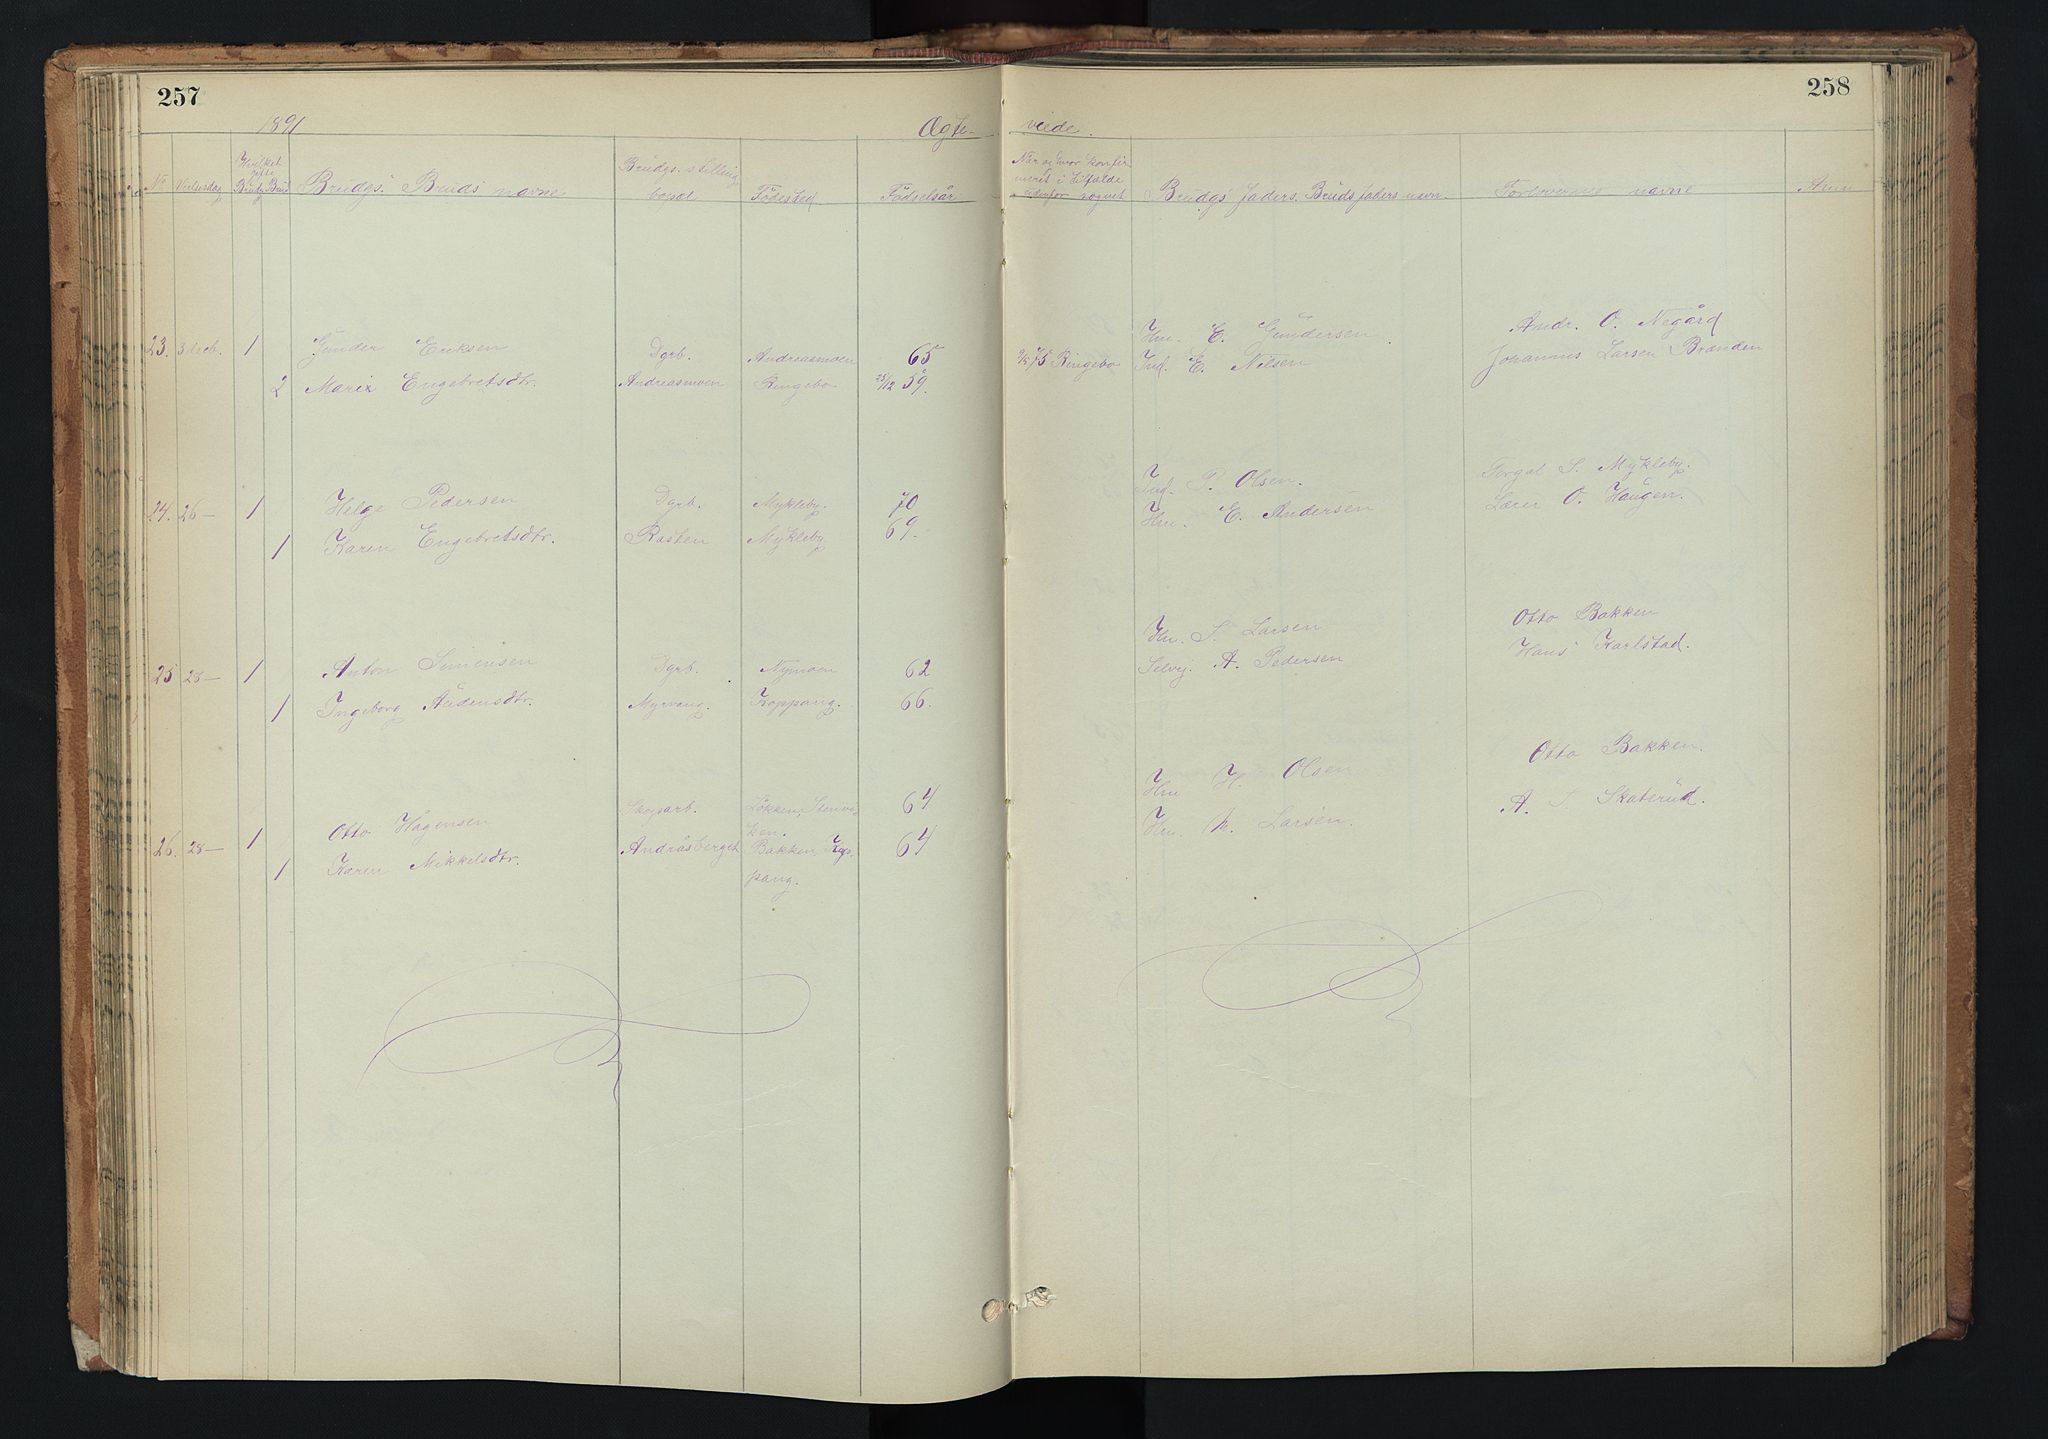 257
258
1891
Ægte-
viede.
No
Vielsesdag
Hvilket gifte
Brudg. Brud
Brudgs. Bruds navne
Brudgs. stilling
bopæl
Födested
Födselsår
Når og hvor konfir
meret i tilfælde
udenfor sognet
Brudgs faders. Bruds faders navn.
Forlovernes navne
Anm
23. 3 decb. 1 Gunder Eriksen Dgrb. Andreasmoen 65 Hm. E. Gundersen. Andr. O. Negård
2 Marie Engebretsdtr. Andreasmoen Ringebo 25/12 59. 75 Ringebo Ind. E. Nilsen Johannus Larsen Brænden
24. 26 — 1 Helge Pedersen Dgrb. Mykleby. 70 Ind. P. Olsen. Torgal S. Mykleby.
1 Karen Engebretsdtr. Rasten Mykleby 69. Hm. E. Andersen O. Haugen.
25 28 — 1 Anton Simensen Dgrb. Nymoen 62 Hm. S. Larsen Otto Bakken
1 Ingeborg Audensdtr. Myrvang. Koppang. 66. Selvej. A. Pedersen Hans Karlstad.
26. 28 — 1 Otto Hagensen Skogsarb. Løkken, Stenvi-
ken. 64 Hm H. Olsen Otto Bakken.
1 Karen Mikkelsdtr. Andråsberget Bakken, Kop-
pang. 64 Hm. M. Larsen. A. S. Skaterud.